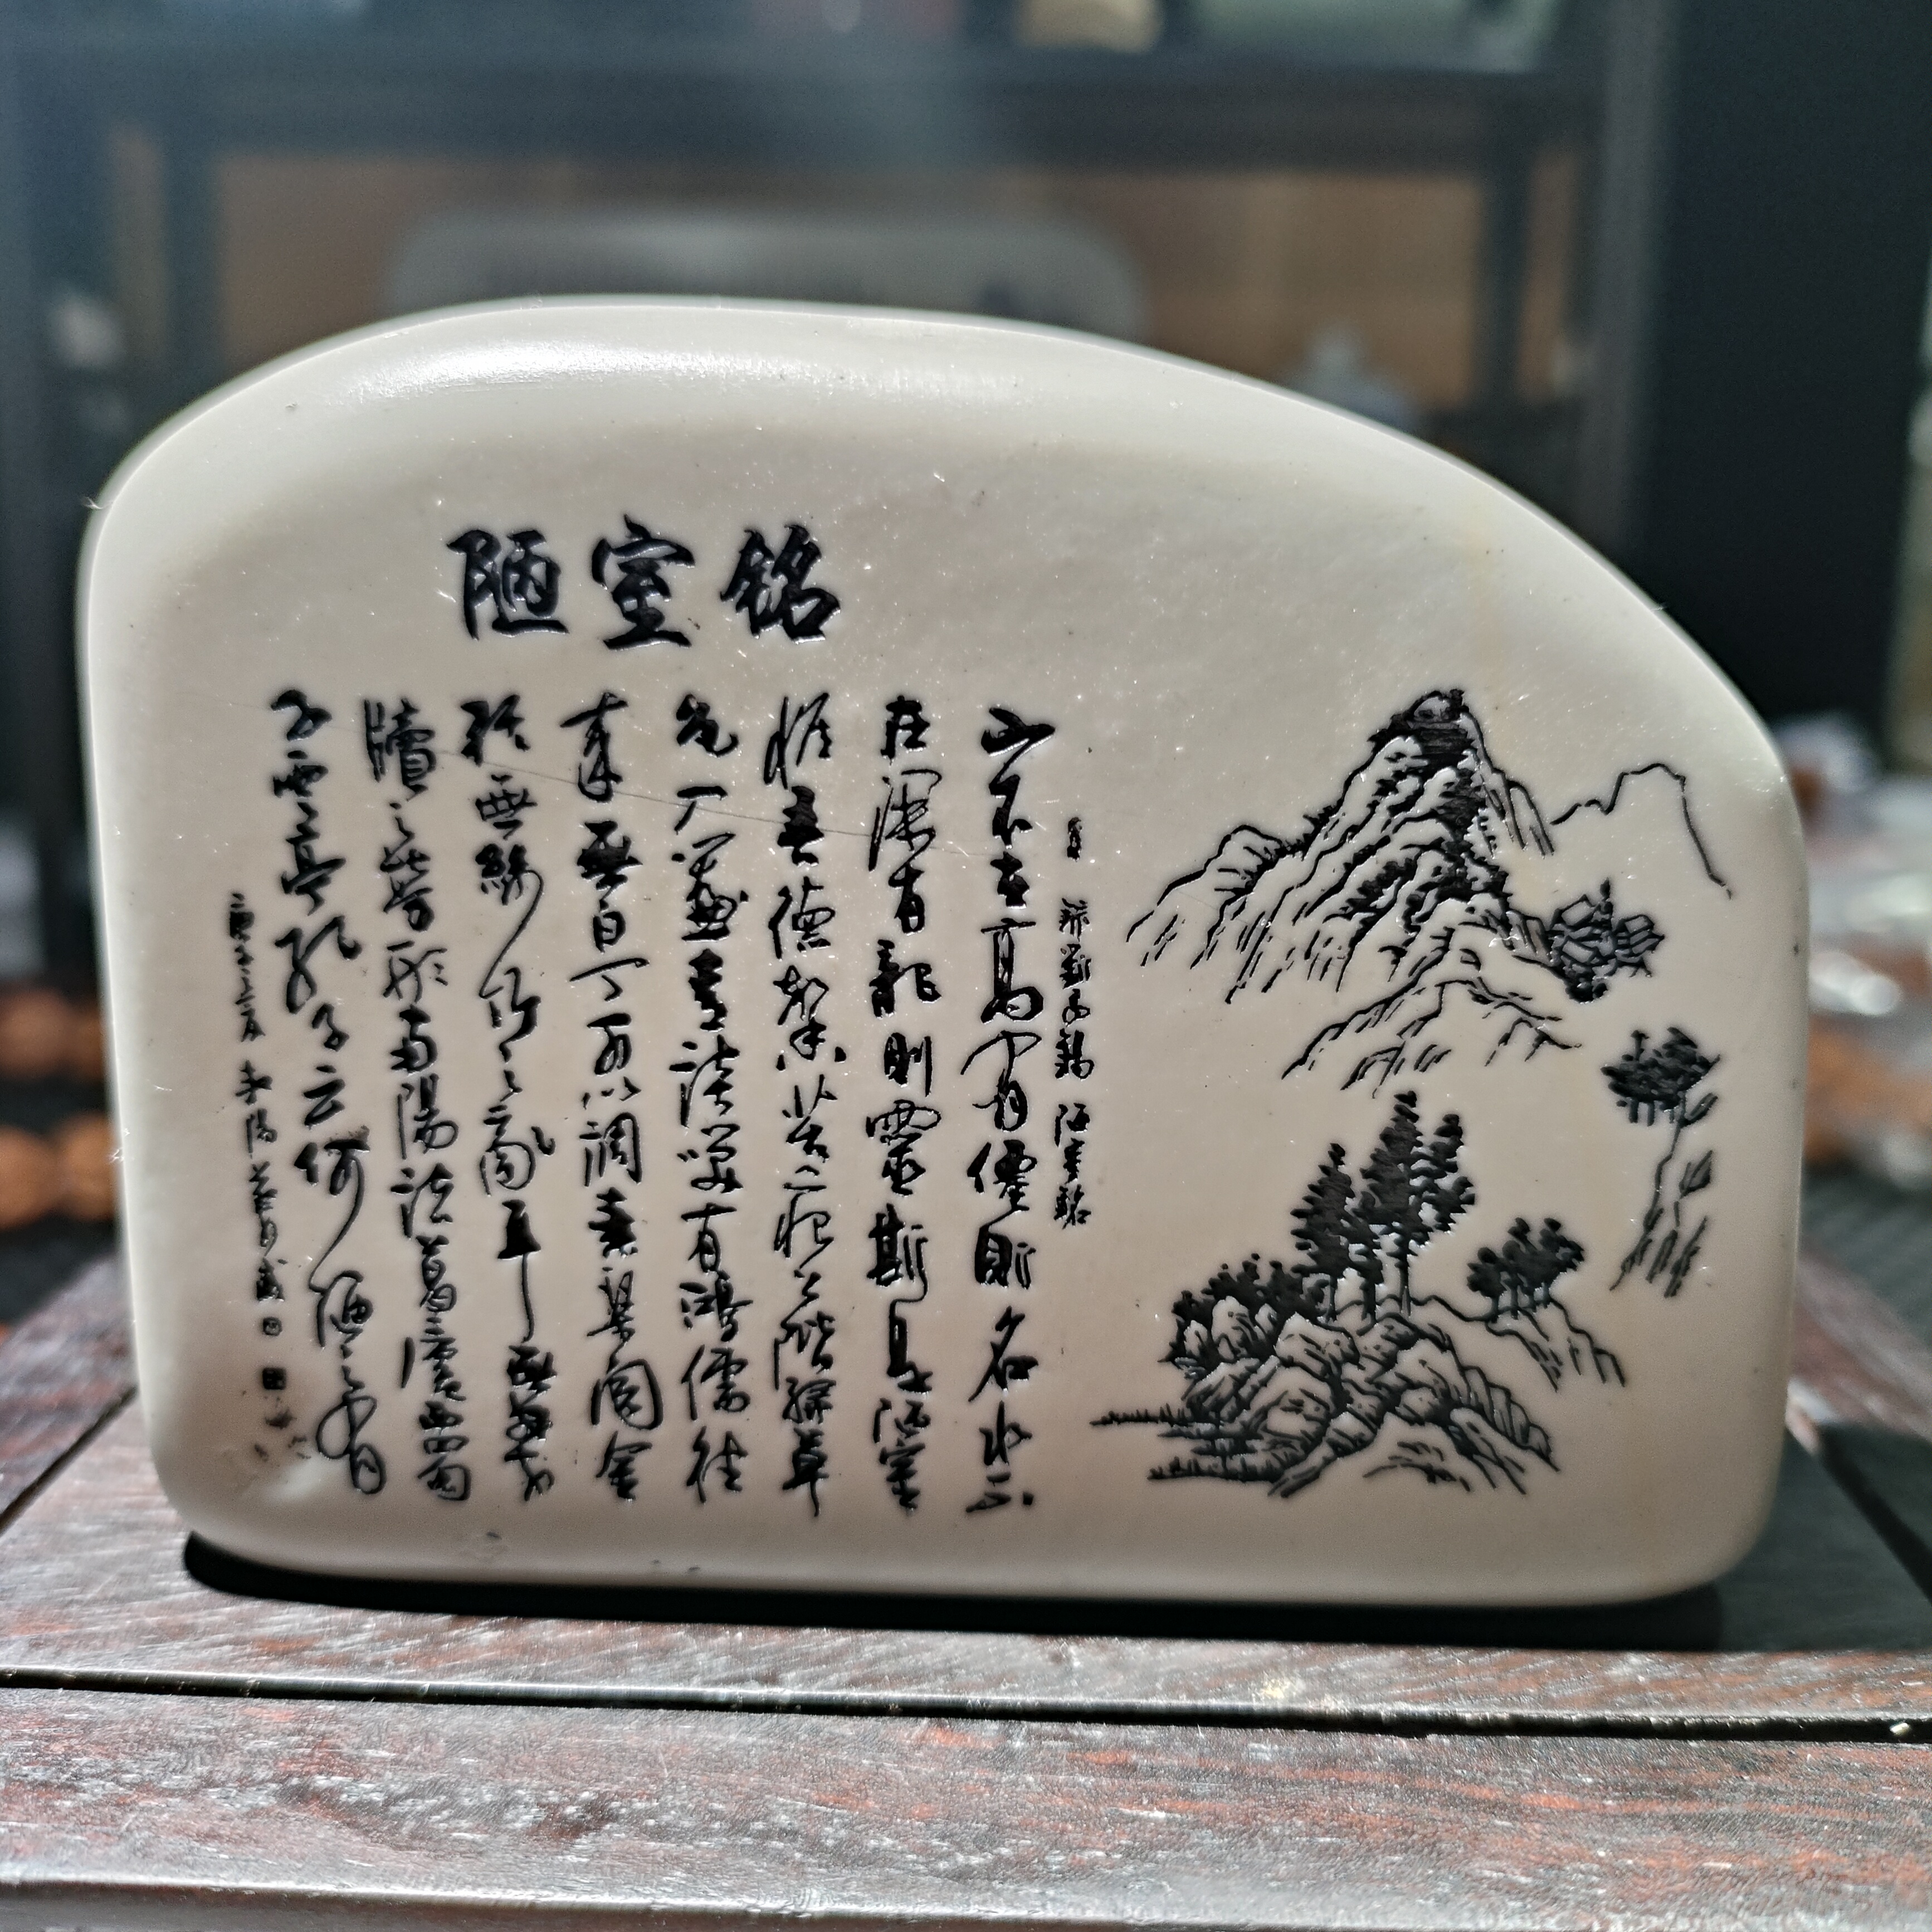 陋室銘
劉禹錫 陋室銘
山不在高有僊則名水不
在深有龍則靈斯是陋室
惟吾德馨苔痕上階綠草
色入簾青談笑有鴻儒往
來無白丁可以調素琴閱金
經無絲竹之亂耳無案
牘之勞形南陽諸葛廬西蜀
子雲亭孔子云何陋之有